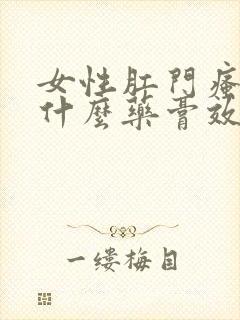 女性肛門瘙
什麼藥膏效
一缕梅目